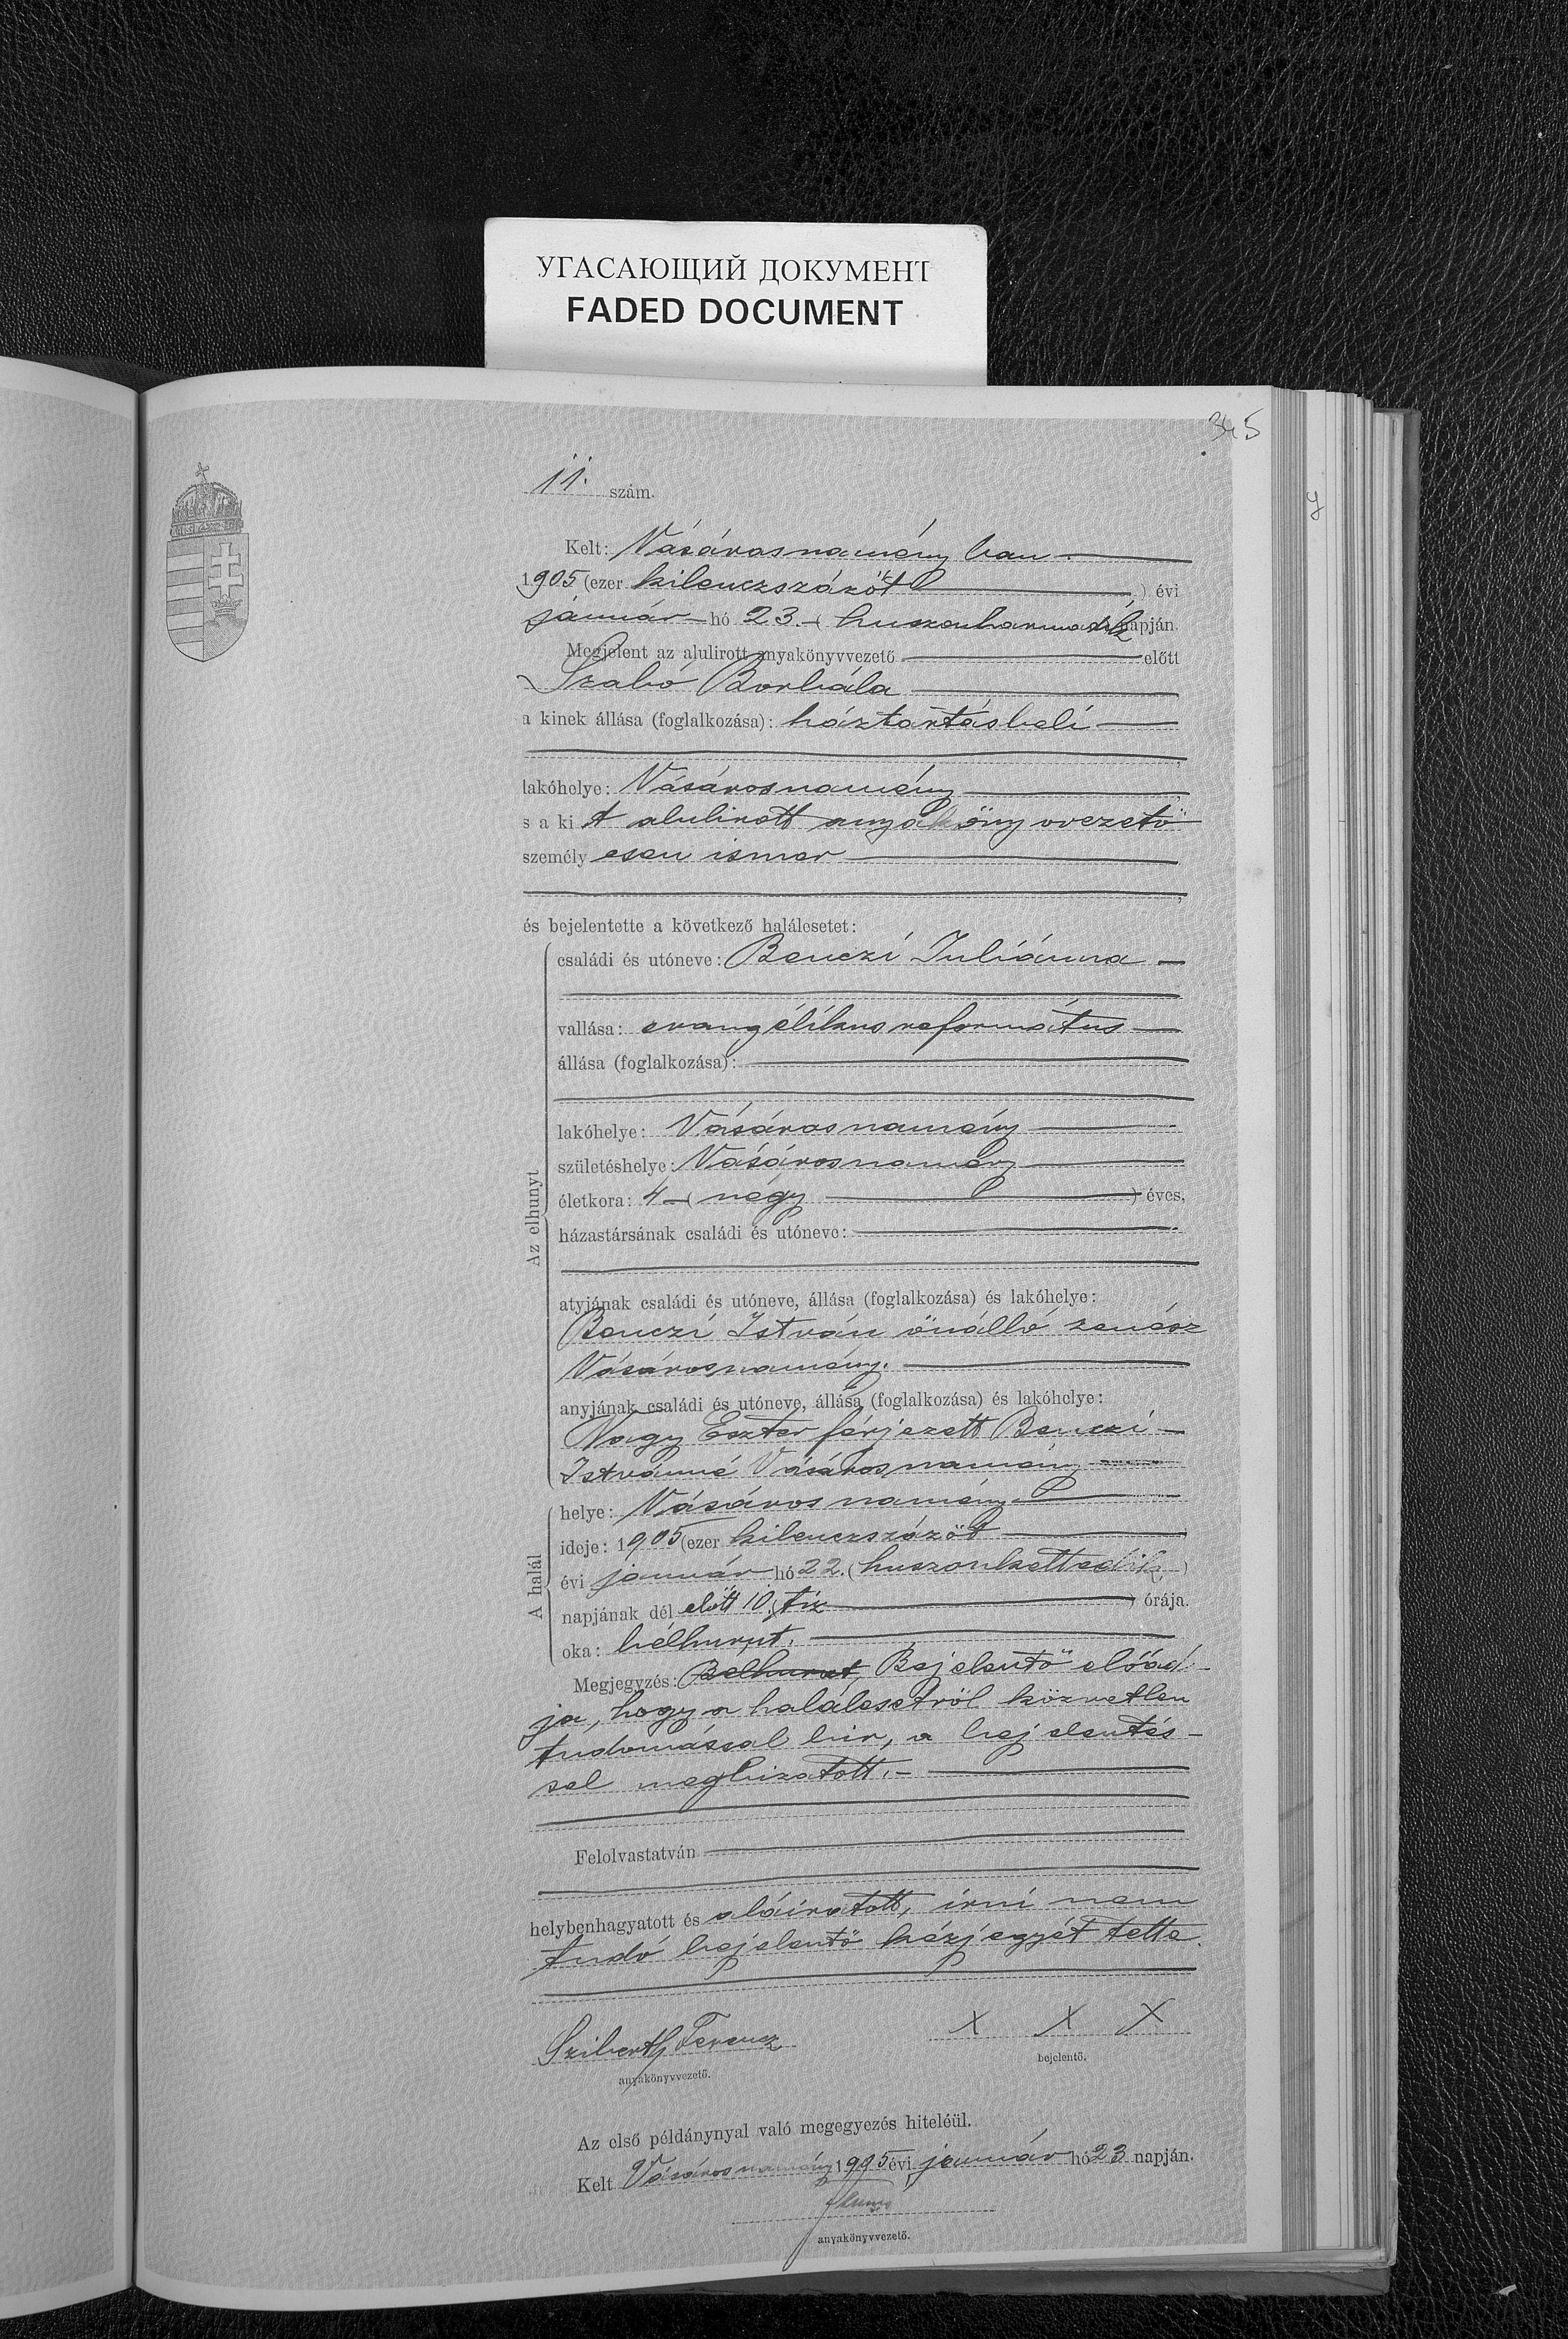 УГАСАЮЩИЙ ДОКУМЕНТ
FADED DOCUMENT
345
11. szám.
Kelt: Vásárosnamény ban
1905 (ezer kilenczszázöt ) évi
január hó 23. (huszonharmadik napján.
Megjelent az alulirott anyakönyvvezető előtt
Szabó Borbála
a kinek állása (foglalkozása): háztartásbeli
lakóhelye: Vásárosnamény
s a kit alulirott anyakönyvvezető
személyesen ismer
és bejelentette a következő halálesetet:
Az elhunyt
családi és utóneve: Benczi Juliánna
vallása: evangélikus református
állása (foglalkozása):
lakóhelye: Vásárosnamény
születéshelye: Vásárosnamény
életkora: 4 (négy ) éves,
házastársának családi és utóneve:
atyjának családi és utóneve, állása (foglalkozása) és lakóhelye:
Benczi István önálló zenész
Vásárosnamény.
anyjának családi és utóneve, állása (foglalkozása) és lakóhelye:
Nagy Eszter férjezett Benczi
Istvánné Vásárosnamény
A halál
helye: Vásárosnamény
ideje: 1905 (ezer kilenczszázöt
évi január hó 22. (huszonkettedik )
napjának dél előtt 10. (tiz ) órája.
oka: bélhurut.
Megjegyzés: Bélhurut, Bejelentő előad-
ja, hogy a halálesetről közvetlen
tudomással bir, a bejelentés-
sel megbizatott.
Felolvastatván
helybenhagyatott és aláiratott, irni nem
tudó bejelentő kézjegyét tette.
Sziberth Ferencz X X X
anyakönyvvezető. bejelentő.
Az első példánynyal való megegyezés hiteléül.
Kelt Vásárosnamény 1905 évi január hó 23 napján.
anyakönyvvezető.